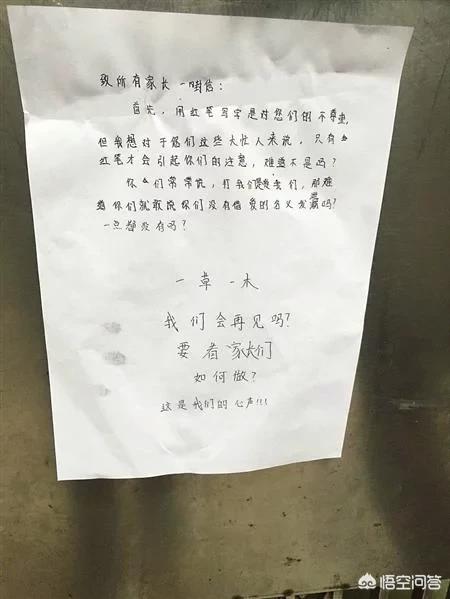 致所有家长一封信：
首先，用红笔写字是对您们的不尊重，
但我想对于您们这些大忙人来说，只有
红笔才会引起你们的注意，难道不是吗？
你们常常说，打我们是爱我们，那难
道你们就敢说你们没有借爱的名义发泄吗？
一点都没有吗？
一草一木
我们会再见吗？
要看家长们
如何做？
这是我们的心声!!!
悟空问答